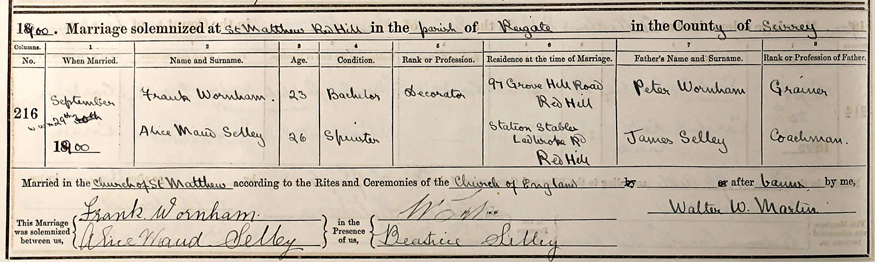 1900. Marriage solemnized at St Matthew Red Hill in the parish of Reigate in the County of Surrey
Columns. 1 2 3 4 5 6 7 8
No. When Married. Name and Surname. Age. Condition. Rank or Profession. Residence at the time of Marriage. Father's Name and Surname. Rank or Profession of Father.
216
September 29th 30th 1900
Frank Wornham. 23 Bachelor Decorator 97 Grove Hill Road Red Hill Peter Wornham Grainer
Alice Maud Selley 26 Spinster Station Stables Ladbroke Rd Red Hill James Selley Coachman.
Married in the Church of St Matthew according to the Rites and Ceremonies of the Church of England by or after banns by me,
This Marriage was solemnized between us,
Frank Wornham.
Alice Maud Selley
in the Presence of us,
Beatrice Selley
Walter W. Martin